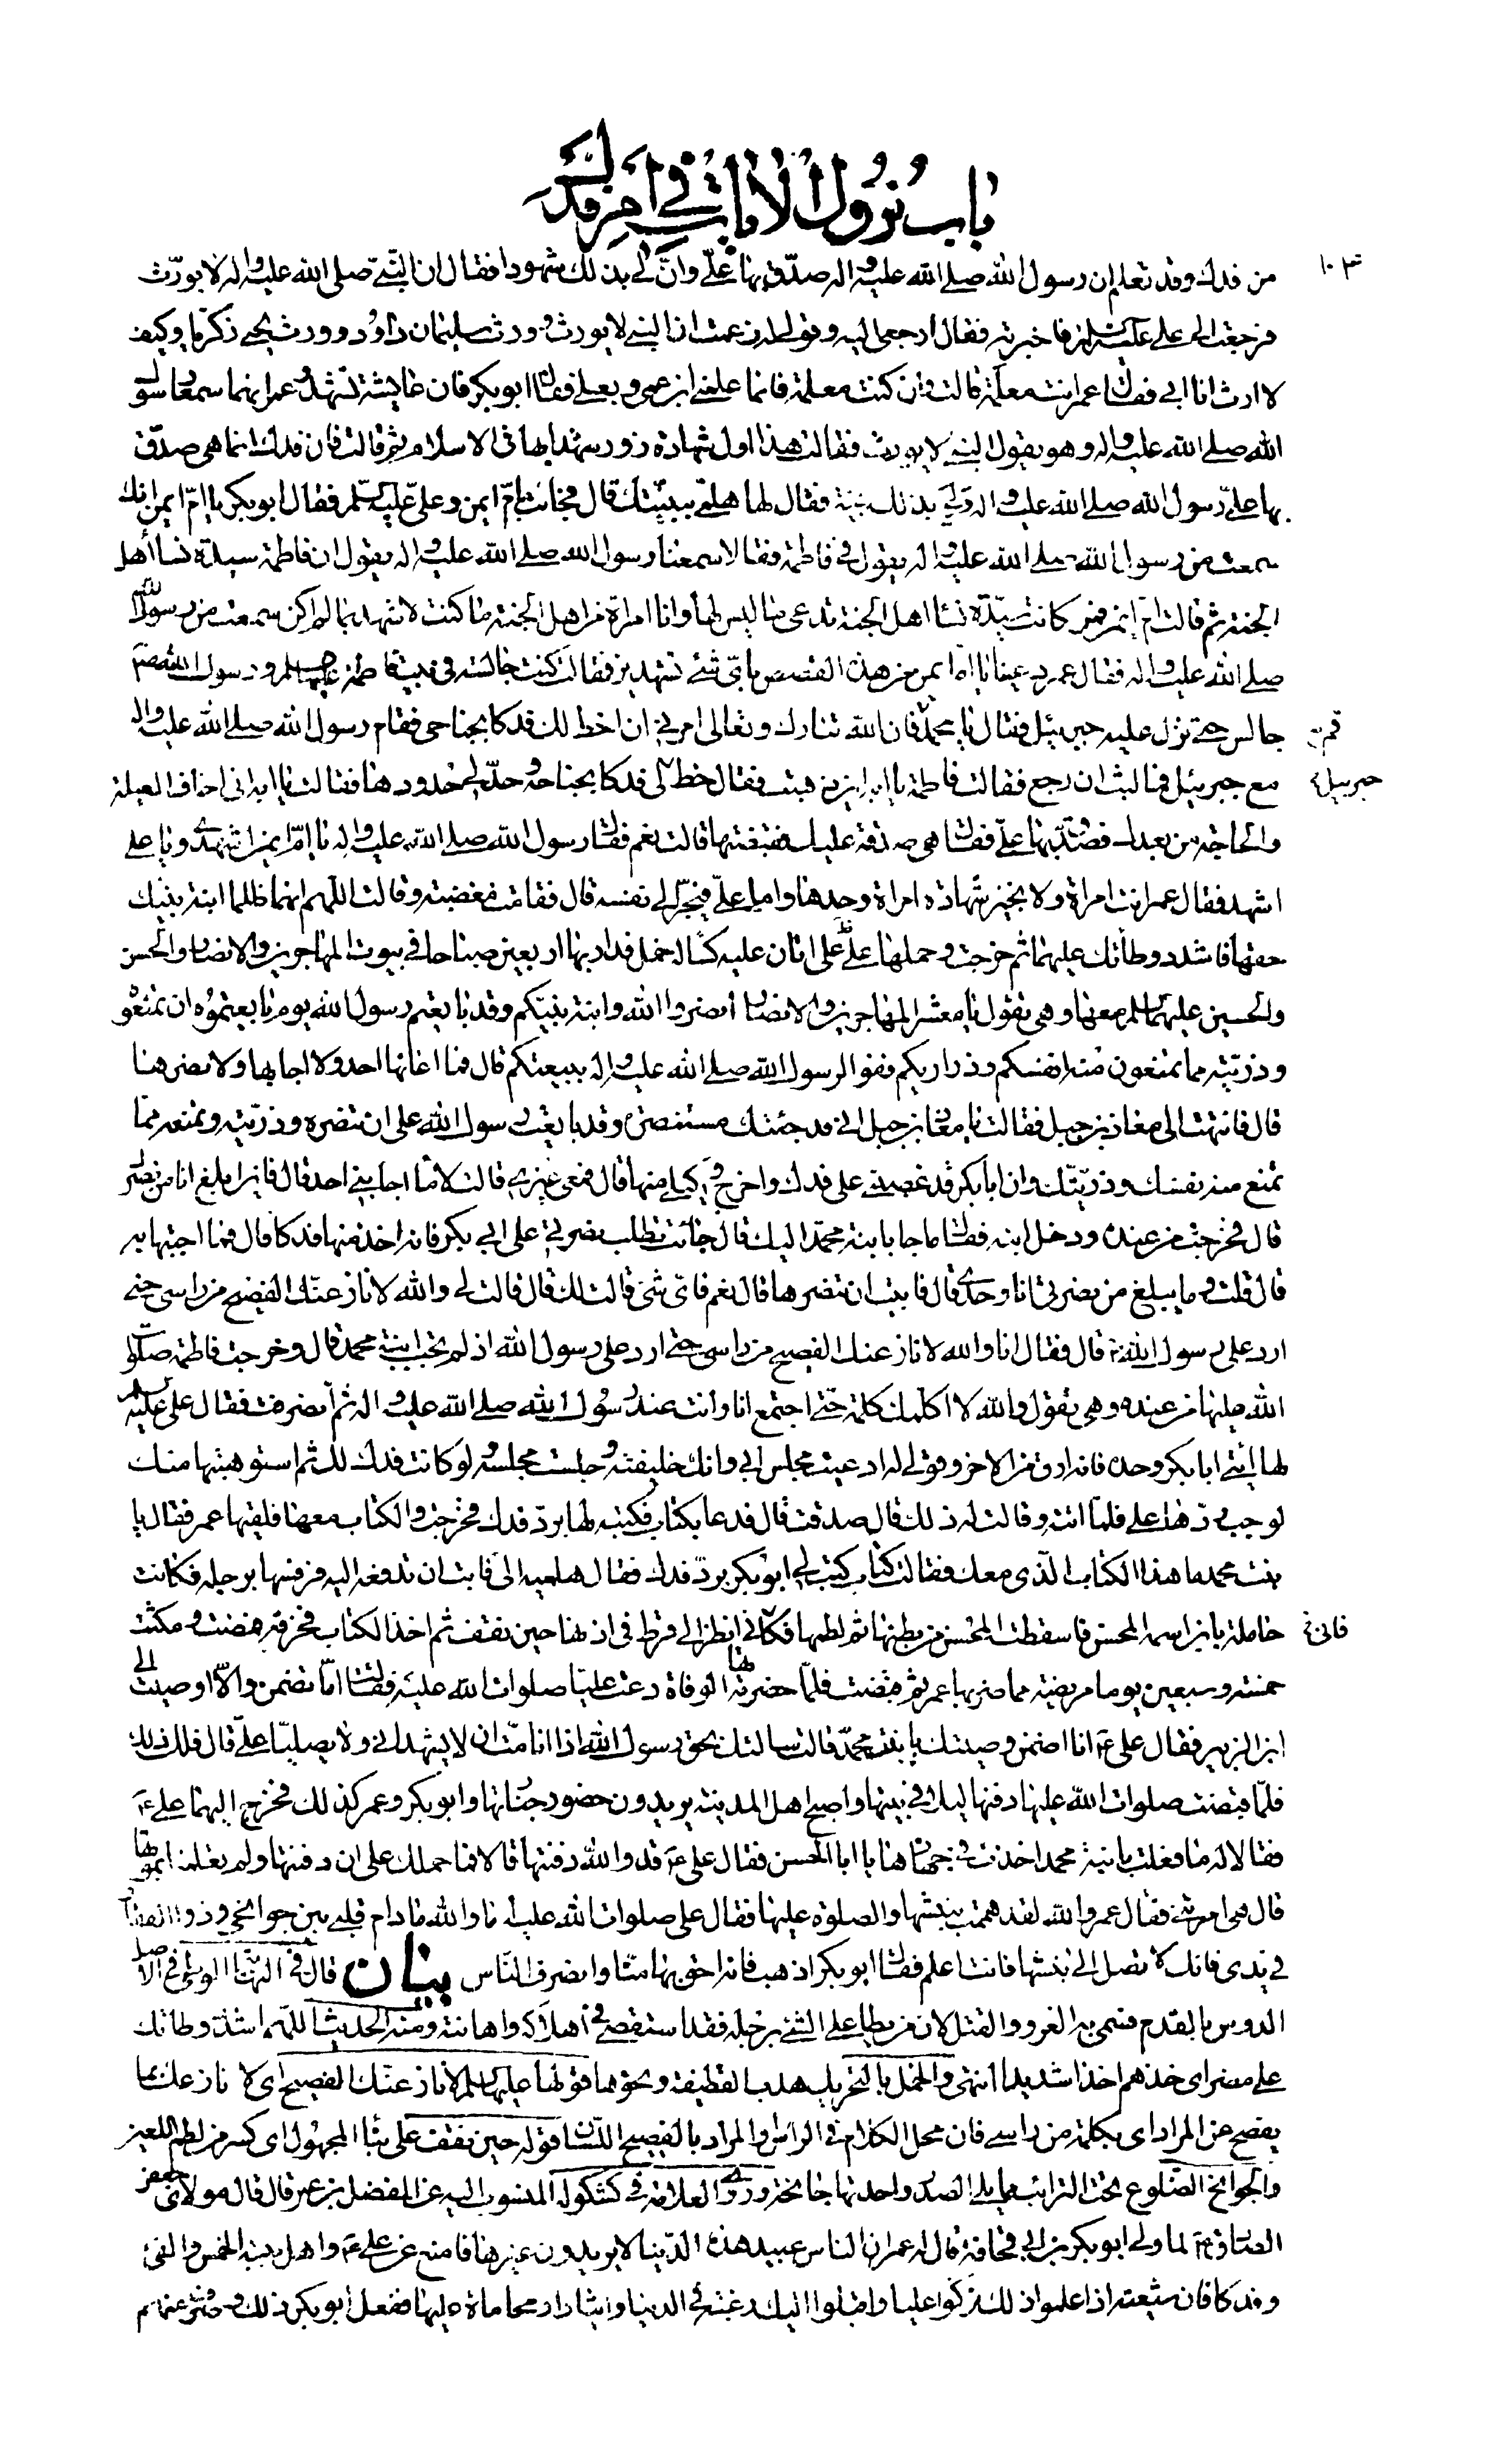 باب نزول الايات في امر فدك
١٠٣
من فدك وقد تعلم ان رسول الله صلى الله عليه واله صدّق بها علىّ وانّ لي بذلك شهودا فقال ان النبىّ صلى الله عليه واله لا يورّث
فرجعت الى على عليه السلم فاخبرته فقال ارجعى اليه وقولى له زعمت ان النبى لا يورث وورث سليمان داود وورث يحيى زكريا وكيف
لا ارث انا ابى فقال عمر انت معلّمة قالت وان كنت معلمة فانما علمنى ابن عمى وبعلى فقال ابو بكر فان عايشة تشهد وعمر انهما سمعا رسول
الله صلى الله عليه واله وهو يقول النبى لا يورث فقالت هذا اول شهادة زور شهدا بها فى الاسلام ثم قالت فان فدك انما هى صدّق
بها علىّ رسول الله صلى الله عليه واله ولى بذلك بينة فقال لها هلمّى ببينتك قال فجائت بامّ ايمن وعلىّ عليه السلم فقال ابو بكر يا امّ ايمن انك
سمعت من رسول الله صلى الله عليه واله يقول فى فاطمة فقالا سمعنا رسول الله صلى الله عليه واله يقول ان فاطمة سيدة نساء أهل
الجنة ثم قالت امّ ايمن فمن كانت سيّدة نساء اهل الجنة تدعى ما ليس لها وانا امراة من اهل الجنة ما كنت لاشهد بما لم اكن سمعت من رسول الله
صلى الله عليه واله فقال عمر دعينا يا امّ ايمن من هذه القصص باىّ شئ تشهدين فقالت كنت جالسة فى بيت فاطمة عليها السلم ورسول الله ص
جالس حتى نزل عليه جبرئيل فقال يا محمد قم فان الله تبارك وتعالى امرنى ان اخط لك فدكا بجناحى فقام رسول الله صلى الله عليه واله
مع جبرئيل فما لبث ان رجع فقالت فاطمة يا ابه اين ذهبت فقال خط جبرئيل لى فدكا بجناحه وحدّ لى حدودها فقالت يا ابه انى اخاف العيلة
والحاجة من بعدك فصدّق بها علىّ فقال هى صدقة عليك فقبضتها قالت نعم فقال رسول الله صلى الله عليه واله يا امّ ايمن اشهدى ويا على
اشهد فقال عمر انت امراة ولا نجيز شهادة امراة وحدها وامّا علىّ فيجرّ الى نفسه قال فقامت مغضبة وقالت اللّهم انهما ظلما ابنة نبيّك
حقها فاشدد وطأتك عليهما ثم خرجت وحملها علىّ على اتان عليه كساء له خمل فدار بها اربعين صباحا فى بيوت المهاجرين والانصار والحسن
والحسين عليهما السلم معها وهى تقول يا معشر المهاجرين والانصار انصروا الله وابنة نبيّكم وقد بايعتم رسول الله يوم بايعتموه ان تمنعوه
وذرّيّته مما تمنعون منه انفسكم وذراريكم ففوا لرسول الله صلى الله عليه واله ببيعتكم قال فما اعانها احد ولا اجابها ولا نصرها
قال فانتهت الى معاذ بن جبل فقالت يا معاذ بن جبل انى قد جئتك مستنصرة وقد بايعت رسول الله على ان تنصره وذرّيّته وتمنعه ممّا
تمنع منه نفسك وذرّيّتك وان ابا بكر قد غصبنى على فدك واخرج وكيلى منها قال فمعى غيرى قالت لا ما اجابنى احد قال فاين ابلغ انا من نصرك
قال فخرجت من عنده ودخل ابنه فقال ما جاء بابنة محمّد اليك قال جائت تطلب نصرتى على ابى بكر فانه اخذ منها فدكا قال فما اجبتها به
قال قلت وما يبلغ من نصرتى انا وحدى قال فابيت ان تنصرها قال نعم فاىّ شئ قالت لك قال قالت لى والله لانازعنّك الفصيح من راسى حتى
ارد على رسول الله ص قال فقال انا والله لانازعنك الفصيح من راسى حتى ارد على رسول الله اذ لم تجب ابنة محمد قال وخرجت فاطمة صلوات
الله عليها من عنده وهى تقول والله لا اكلمك كلمة حتى اجتمع انا وانت عند رسول الله صلى الله عليه واله ثم انصرفت فقال على عليه السلم
لها ائتى ابا بكر وحده فانه ارق من الاخر وقولى له ادعيت مجلس ابى وانك خليفته وجلست مجلسه ولو كانت فدك لك ثم استوهبتها منك
لوجب ردّها على فلما اتته وقالت له ذلك قال صدقت قال فدعا بكتاب فكتبه لها بردّ فدك فخرجت والكتاب معها فلقيها عمر فقال يا
بنت محمد ما هذا الكتاب الّذى معك فقالت كتاب كتب لى ابو بكر بردّ فدك فقال هلميه الىّ فابت ان تدفعه اليه فرفسها برجله فكانت
حاملة بابن اسمه المحسن فاسقطت المحسن من بطنها ثم لطمها فكانى انظر الى قرط فى اذنها حين نقفت ثم اخذ الكتاب فخرقه فمضت ومكثت
خمسة وسبعين يوما مريضة مما ضربها عمر ثم قبضت فلمّا حضرتها الوفاة دعت عليّا صلوات الله عليه فقالت امّا تضمن والّا اوصيت الى
ابن الزبير فقال على ع انا اضمن وصيتك يا بنت محمّد قالت سالتك بحق رسول الله اذا انا متّ ان لا يشهدانى ولا يصليا علىّ قال فلك ذلك
فلمّا قبضت صلوات الله عليها دفنها ليلا فى بيتها واصبح اهل المدينة يريدون حضور جنازتها وابو بكر وعمر كذلك فخرج اليهما على ع
فقالا له ما فعلت بابنة محمد اخذت فى جهازها يا ابا الحسن فقال على ع قد والله دفنتها قالا فما حملك على ان دفنتها ولم تعلمنا بموتها
قال هى امرتنى فقال عمر والله لقد هممت بنبشها والصلوة عليها فقال على صلوات الله عليه اما والله ما دام قلبى بين جوانحى وذو الفقار
فى يدى فانك لا تصل الى نبشها فانت اعلم فقال ابو بكر اذهب فانه احق بها منّا وانصرف النّاس بيان قال فى النهاية الوطى فى الاصل
الدوس بالقدم فسمى به الغزو والقتل لان من يطا على الشئ برجله فقد استقصى فى اهلاكه واهانته ومنه الحديث اللّهم اشدد وطاتك
على مضر اى خذهم اخذا شديدا انتهى والخمل بالتحريك هدب القطيفة ونحوها قولها عليها السلم لانازعنّك الفصيح اى لانازعنك بما
يفصح عن المراد اى بكلمة من راسى فان محل الكلام فى الراس والمراد بالفصيح اللسان قوله حين نقفت على بناء المجهول اى كسر من لطم اللعين
والجوانح الضّلوع تحت الترائب مما يلى الصدر واحدتها جانحة وروى العلامة فى كشكوله المنسوب اليه عن المفضل بن عمر قال قال مولاى جعفر
الصادق ع لما ولى ابو بكر بن ابى قحافة قال له عمر ان الناس عبيد هذه الدّنيا لا يريدون غيرها فامنع عن على ع واهل بيته الخمس والفئ
وفدكا فان شيعته اذا علموا ذلك تركوا عليا واقبلوا اليك رغبة فى الدنيا وايثارا ومحاماة عليها ففعل ابو بكر ذلك وصرف عنهم